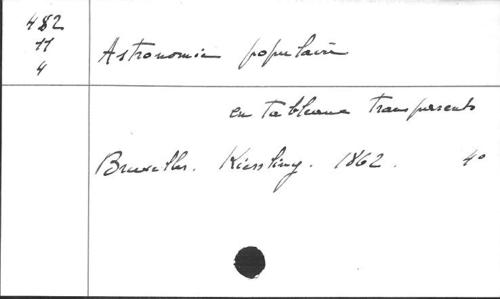 482
11
4
Astronomie populaire
en tableaux transparents
Bruxelles. Kiessling. 1862. 4°